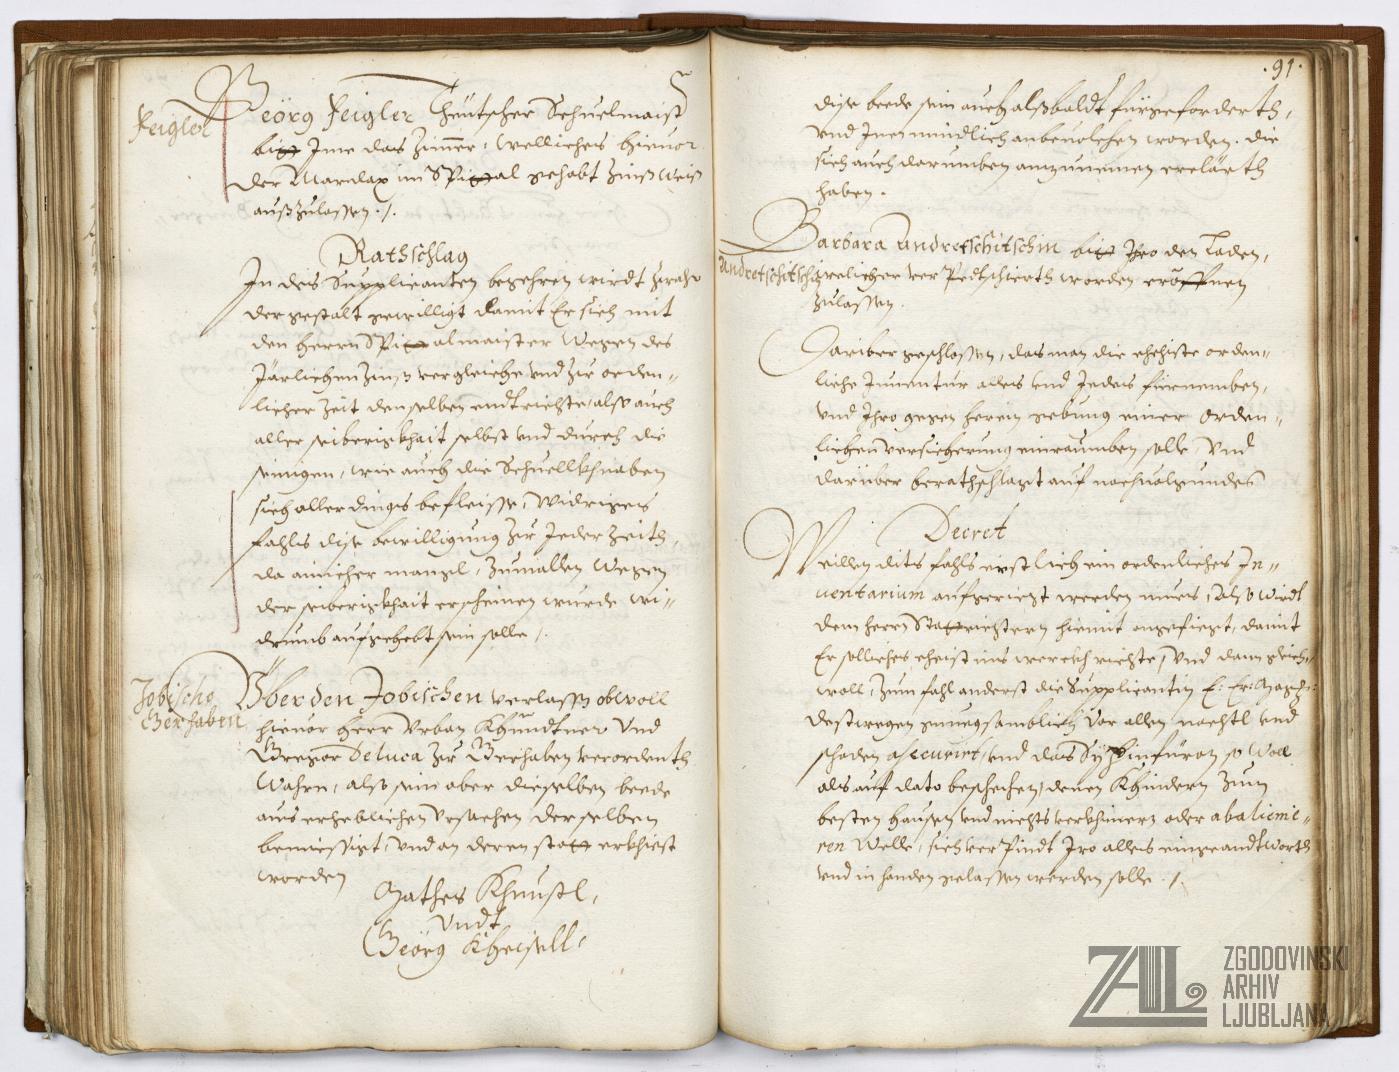 Feigler
Geörg Feigler Theütscher Schuelmaist
bitt Ime das Zimer, welliches hieuor
der Marulax im Spittal gehabt Zinßweiß
außzulassen ./.
Rathschlag
In des Supplicanten begehren wirdt
dergestalt gewilligt damit Er sich mit
den herrn Spittalmaister wegen des
Järlichen Zinß vergleiche vnd Zu orden-
licher Zeit denselben endtrichte, also auch
aller seiberigkhait selbst vnd durch die
seinigen, wie auch die Schuellkhnaben
sich aller dings befleisse, Widrigens
fahls dise bewilligung Zu Jeder Zeith,
da ainicher mangl, Zumallen wegen
der seiberigkhait erscheinen wurde wi-
drumb aufgehebt sein solle ./.
Jobische
Gerhaben
Vber den Jobischen verlass obwoll
hieuor herr Vrban Khundtner vnd
Gregor Deluca Zu Gerhaben verordenth
wahrn, also sein aber dieselben beede
aus erheblichen vrsachen derselben
bemiessigt, vnd an deren statt erkhiest
worden
Mathes Khnussl,
vndt
Geörg Kheisell,
.91.
dise beede sein auch alßbaldt fürgeforderth,
vnd Inen mindlich anbeuolchen worden. die
sich auch darumben anzunemen erclärth
haben.
Andretschitschin
Barbara Andretschitschin bitt Ihro den Laden,
welicher verpedtschierth worden eröffnen
Zulassen.
Dariber geschlossen, das man die ehehiste orden-
liche Inuentur alles vnd Jedes fürnemben,
vnd Ihro gegen herein gebung einer orden-
lichen versicherung einraumben solle, vnd
darüber berathschlagt auf nachuolgundes
Decret
Weillen dits fahls erstlich ein ordenliches In-
uentarium aufgericht werden mues, Also wirdt
dem herrn Stattrichtern hiemit angefiegt, damit
Er solliches eheist ins werckh richte, vnd dann gleich-
woll, Zum fahl anderst die Supplicantin E: Er: Magist:
destwegen gnuegsamblich vor allen nachtl vnd
schaden assecurirt, vnd das Sy hinfüran so woll
als auf dato beschehen, denen Khindern Zum
besten hausen vnd nichts verkhimern oder abalieni-
ren welle, sich verpindt Iro alles eingeandtworth
vnd in handen gelassen werden solle ./.
ZAL
ZGODOVINSKI
ARHIV
LJUBLJANA